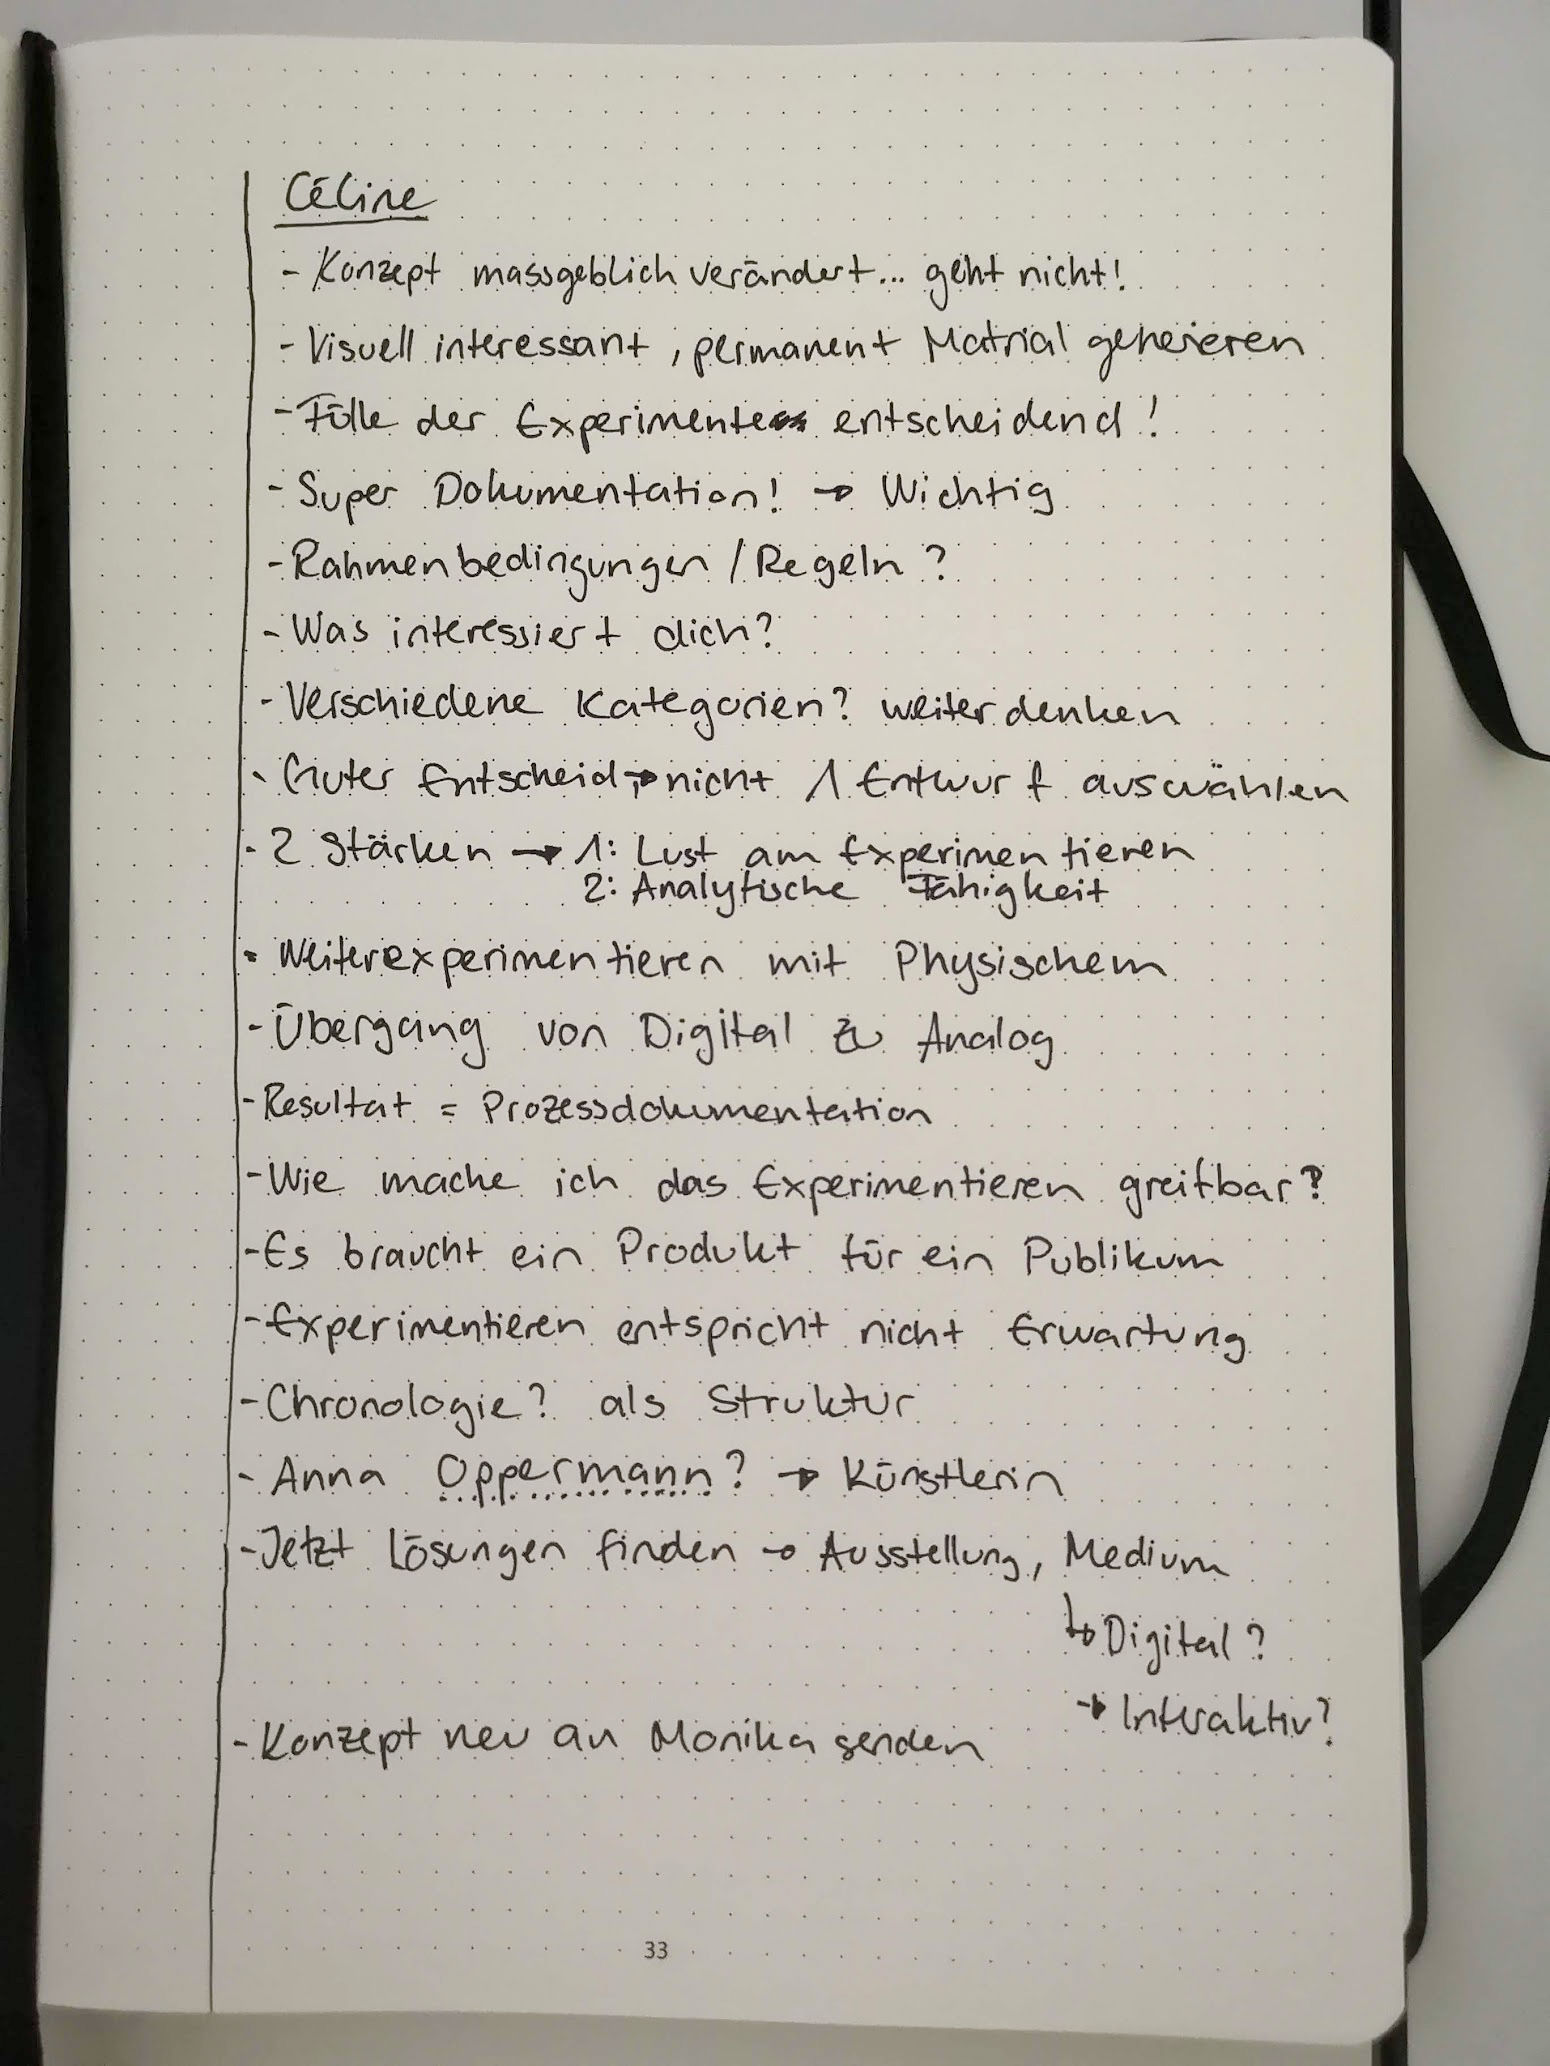 Céline
- Konzept massgeblich verändert... geht nicht!
- Visuell interessant, permanent Matrial generieren
- Fülle der Experimente entscheidend!
- Super Dokumentation! → Wichtig
- Rahmenbedingungen / Regeln?
- Was interessiert dich?
- Verschiedene Kategorien? weiterdenken
- Guter Entscheid, → nicht 1 Entwurf auswählen
- 2 Stärken → 1: Lust am Experimentieren
2: Analytische Fähigkeit
- Weiterexperimentieren mit Physischem
- Übergang von Digital zu Analog
- Resultat = Prozessdokumentation
- Wie mache ich das Experimentieren greifbar?
- Es braucht ein Produkt für ein Publikum
- Experimentieren entspricht nicht Erwartung
- Chronologie? als Struktur
- Anna Oppermann? → Künstlerin
- Jetzt Lösungen finden → Ausstellung, Medium
↳ Digital?
→ Interaktiv?
- Konzept neu an Monika senden
33